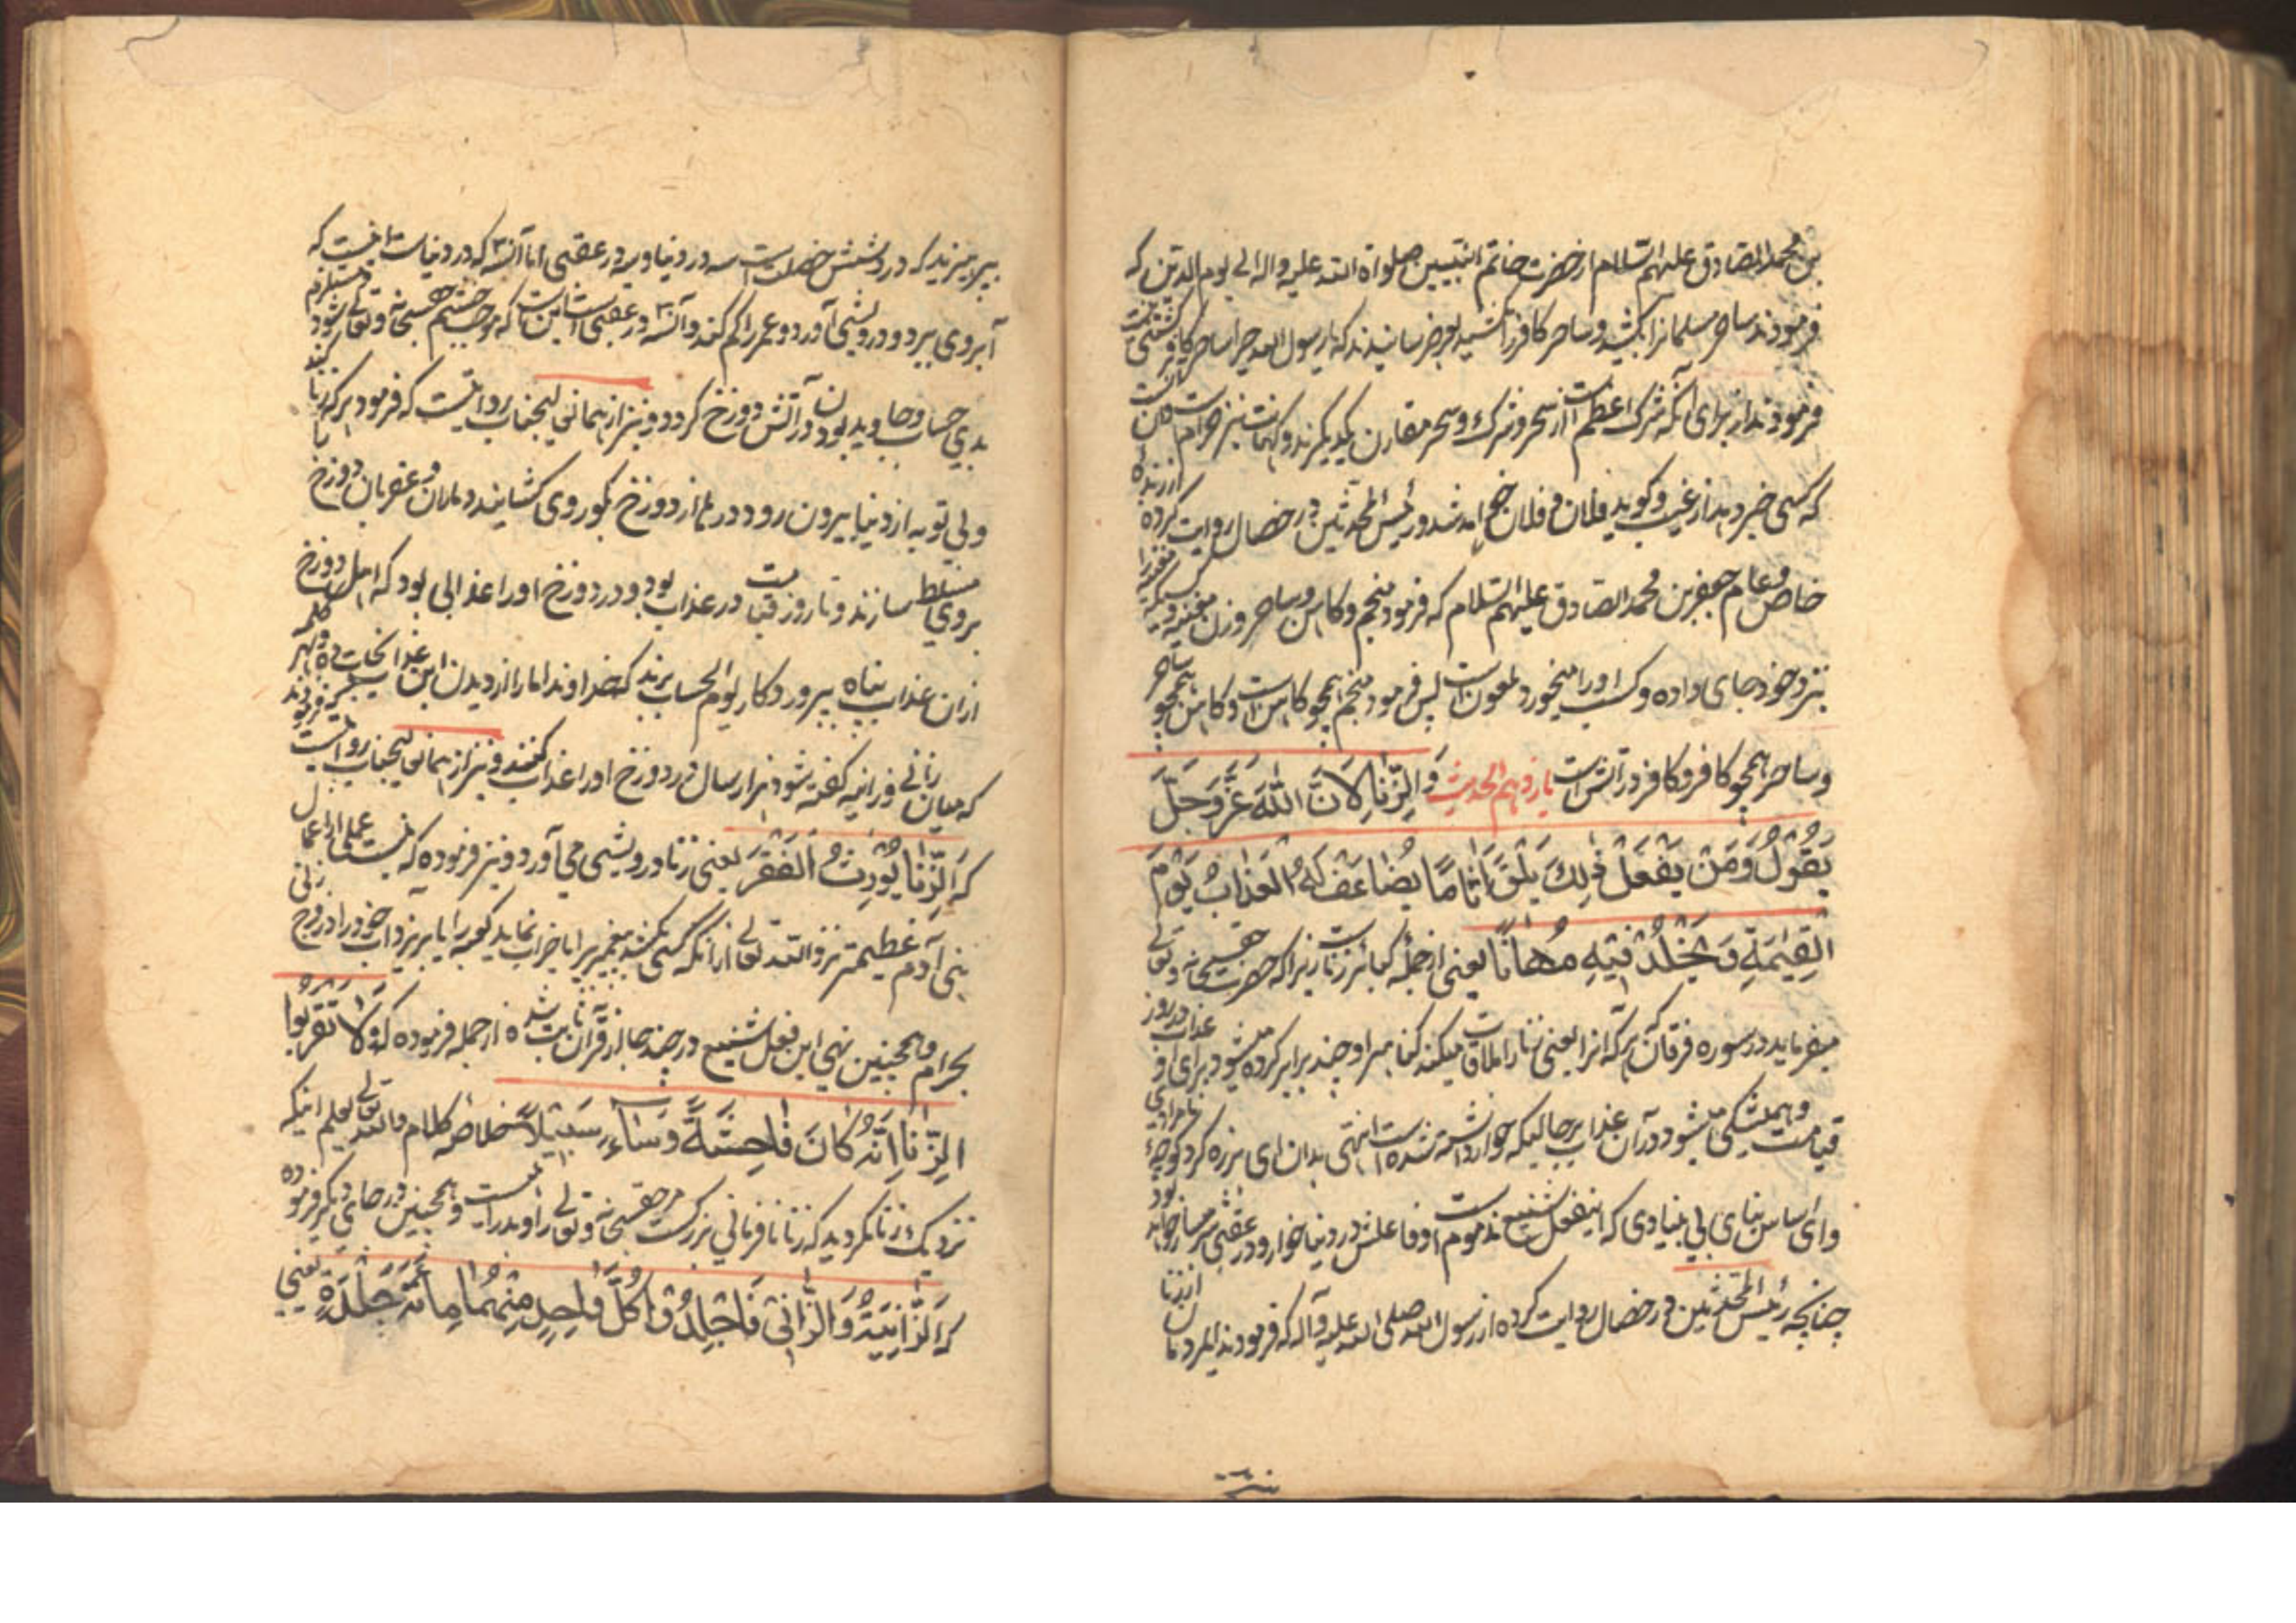 بن محمد الصادق علیهم السلام از حضرت خاتم النبیین صلواة الله علیه واله الی یوم الدین که
فرمودند ساحر مسلمانرا بکشید و ساحر کافر را نکشید بعرض رسانیدند که یا رسول الله چرا ساحر کافر کشتنی نیست
فرمودند از برای آنکه شرک اعظم است از سحر و شرک و سحر مقارن یکدیگرند و کهانت نیز حرامست و کاهن آنست
که کسی خبر دهد از غیب و گوید فلان و فلان چیز خواهد شد و رئیس المحدثین در خصال روایت کرده
خاص و عام جعفر بن محمد الصادق علیهم السلام که فرمود منجم و کاهن و ساحر و زن مغنیه و کسیکه مغنیه را
نزد خود جای داده و کسب او را میخورد ملعونست پس فرمود منجم همچو کاهن است و کاهن همچو ساحر
و ساحر همچو کافر و کافر در آتش است یازدهم الحدیث وَالزِّنَا لِاَنَّ اللّٰهَ عَزَّ وَجَلَّ
یَقُولُ وَمَنْ یَفْعَلْ ذٰلِکَ یَلْقَ اَثَامًا یُضَاعَفْ لَهُ الْعَذَابُ یَوْمَ
الْقِیٰمَةِ وَیَخْلُدْ فِیهِ مُهَانًا یعنی از جمله کبائر زناست زیرا که حضرت حقسبحانه و تعالی
میفرماید در سوره فرقان که هر که آنرا یعنی زنا را ملاقات میکند گناه میبرد او چند برابر کرده میشود برای او عذاب در روز
قیامت و همیشگی میشود در آن عذاب بر حالیکه خوار داشته شده است انتهی بدان ای هرزه گرد کوچهٔ نامرادی
وای اساس بنای بی بنیادی که اینفعل شنیع مذموم است و فاعلش در دنیا خوار و در عقبی شرمسار خواهد بود
چنانچه رئیس المحدثین در خصال روایت کرده از رسول الله صلی الله علیه وآله که فرمودند ایمردمان از زنا
بپرهیزید که در او شش خصلت است سه در دنیا و سه در عقبی اما آن سه که در دنیاست اینست که
آبروی ببرد و درویشی آورد و عمر را کم کند و آن سه در عقبی است اینست که موجب خشم حقسبحانه و تعالی شود و مستلزم
بدی حساب و جاوید بودن در آتش دوزخ گردد و نیز از همانی لیجناب روایتست که فرمود هر که زنا کند
و بی توبه از دنیا بیرون رود درها از دوزخ بگور وی گشایند و ماران و عقربان دوزخ را
بروی مسلط سازند و تا روز قیامت در عذاب بود و در دوزخ او را عذابی بود که اهل دوزخ
از آن عذاب پناه بپروردگار یوم الحساب برند که خداوندا ما را از دیدن این عذاب نجات ده
که میان زانی و زانیه گفته شود هزار سال در دوزخ او را عذاب کنند و نیز از همانی لیجناب روایتست
که اَلزِّنَا یُورِثُ الْفَقْرَ یعنی زنا درویشی می آورد و نیز فرموده که نیست عملی از اعمال
بنی آدم عظیمتر نزد الله تعالی از آنکه کسی بکشد پیغمبری را یا خراب نماید کعبه را یا بریزد آب خود را در فرج زنی
بحرام و همچنین نهی این فعل شنیع در چند جا از قرآن ثابت شده از جمله فرموده که وَلَا تَقْرَبُوا
الزِّنَا اِنَّهُ کَانَ فَاحِشَةً وَسَاءَ سَبِیلًا خلاصه کلام والله تعالی یعلم اینکه
نزدیک زنا مگردید که زنا نافرمانی بزرگست مر حقسبحانه و تعالی را و بد راهیست و همچنین در جای دیگر فرموده
که اَلزَّانِیَةُ وَالزَّانِی فَاجْلِدُوا کُلَّ وَاحِدٍ مِنْهُمَا مِائَةَ جَلْدَةٍ یعنی